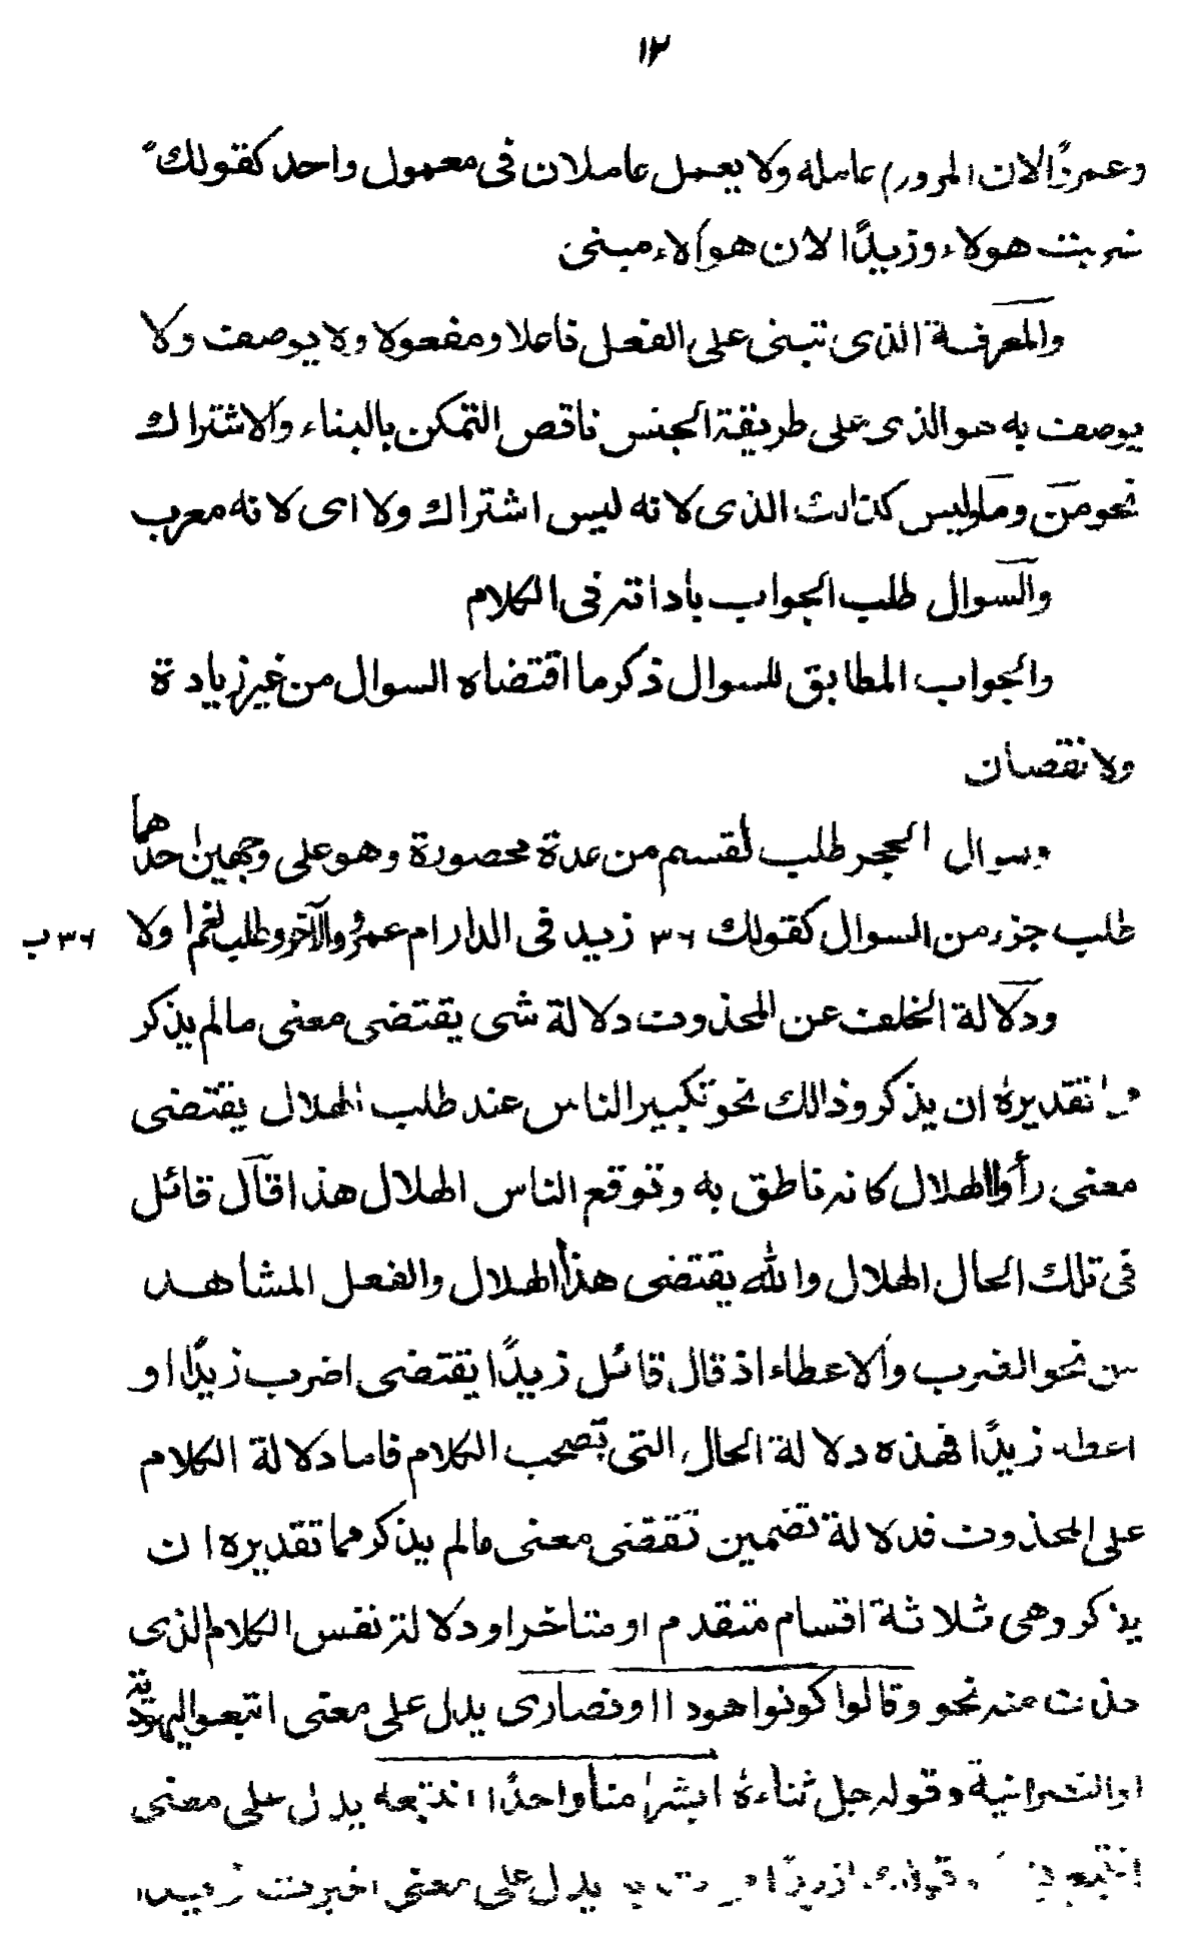 ١٢
وعمرًا لان المرور عامله ولا يعمل عاملان فى معمول واحد كقولك
ضربت هولاء وزيدًا لان هؤلاء مبنى
والمعرفة الذى تبنى على الفعل فاعلا ومفعولا ولا يوصف ولا
يوصف به هو الذى على طريقة الجنس ناقص التمكن بالبناء والاشتراك
نحو من وما وليس كذلك الذى لانه ليس اشتراك ولا اى لانه معرب
والسوال طلب الجواب باداته فى الكلام
والجواب المطابق للسوال ذكر ما اقتضاه السوال من غير زيادة
ولا نقصان
وسوال الحجر طلب لقسم من عدة محصورة وهو على وجهين احدهما
طلب جزء من السوال كقولك ٣٦ زيد فى الدار ام عمرو والآخر وطلب لنعم او لا ٣٦ ب
ودلالة الخلف عن المحذوف دلالة شى يقتضى معنى ما لم يذكر
تقديره ان يذكر وذالك نحو تكبير الناس عند طلب الهلال يقتضى
معنى رأوا الهلال كانه ناطق به وتوقع الناس الهلال هذا قال قائل
فى تلك الحال الهلال والله يقتضى هذا الهلال والفعل المشاهد
من نحو الضرب والاعطاء اذ قال قائل زيدًا يقتضى اضرب زيدًا او
اعطه زيدًا فهذه دلالة الحال التى تصحب الكلام فاما دلالة الكلام
على المحذوف فدلالة تضمين تقتضى معنى ما لم يذكر مما تقديره ان
يذكر وهى ثلاثة اقسام متقدم او متاخر او دلالة نفس الكلام الذى
حذف منه نحو وقالوا كونوا هودا او نصارى يدل على معنى اتبعوا اليهودية
او النصرانية وقوله جل ثناءه ابشرا منا واحدًا نتبعه يدل على معنى
انتبع يدل على معنى اخبرت زيدا